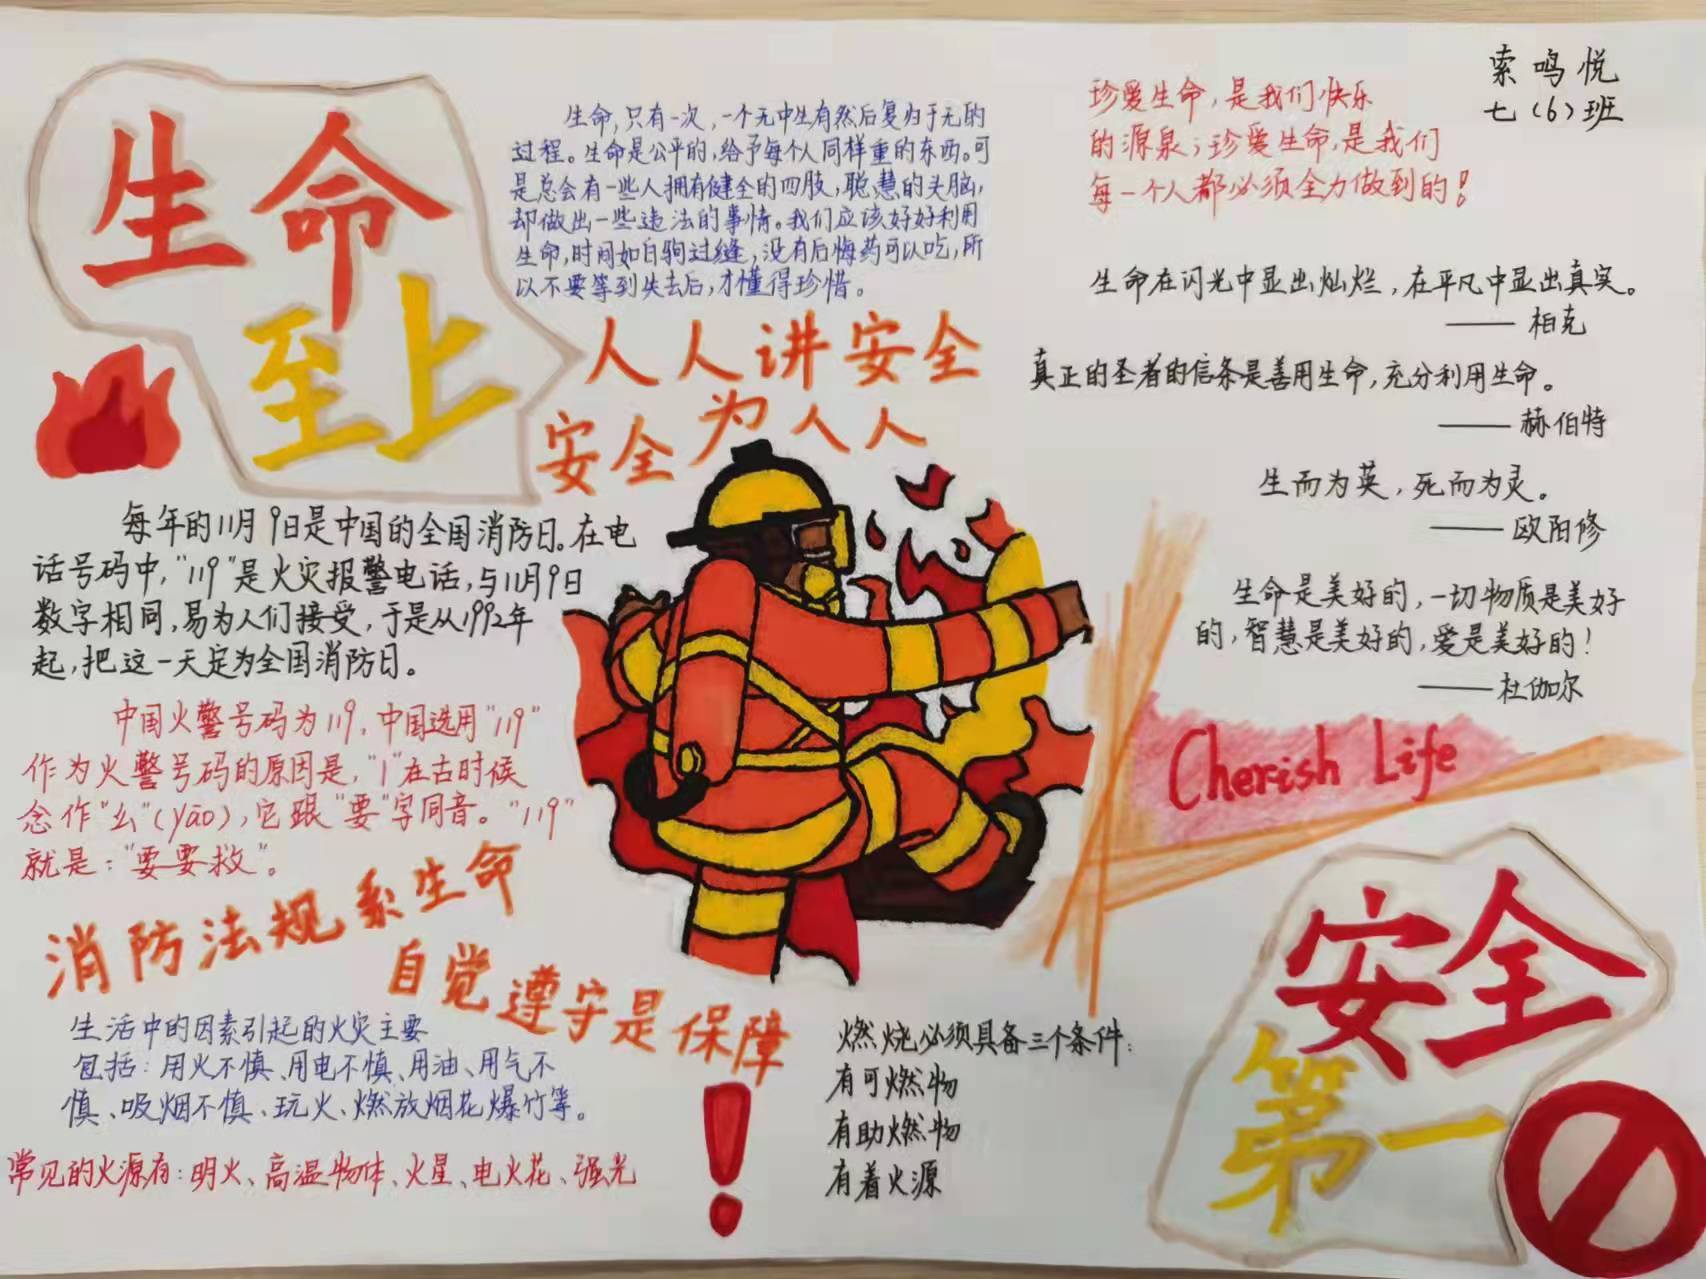 索鸣悦
七(6)班
生命
至上
生命,只有一次,一个无中生有然后复归于无的
过程。生命是公平的,给予每个人同样重的东西。可
是总会有一些人拥有健全的四肢,聪慧的头脑,
却做出一些违法的事情。我们应该好好利用
生命,时间如白驹过缝,没有后悔药可以吃,所
以不要等到失去后,才懂得珍惜。
珍爱生命,是我们快乐
的源泉;珍爱生命,是我们
每一个人都必须全力做到的!
生命在闪光中显出灿烂,在平凡中显出真实。
——柏克
真正的圣者的信条是善用生命,充分利用生命。
——赫伯特
生而为英,死而为灵。
——欧阳修
生命是美好的,一切物质是美好
的,智慧是美好的,爱是美好的!
——杜伽尔
人人讲安全
安全为人人
每年的11月9日是中国的全国消防日。在电
话号码中,"119"是火灾报警电话,与11月9日
数字相同,易为人们接受,于是从1992年
起,把这一天定为全国消防日。
中国火警号码为119,中国选用"119"
作为火警号码的原因是,"1"在古时候
念作"幺"(yāo),它跟"要"字同音。"119"
就是:"要要救"。
消防法规系生命
自觉遵守是保障
!
生活中的因素引起的火灾主要
包括:用火不慎、用电不慎、用油、用气不
慎、吸烟不慎、玩火、燃放烟花爆竹等。
常见的火源有:明火、高温物体、火星、电火花、强光
燃烧必须具备三个条件:
有可燃物
有助燃物
有着火源
Cherish Life
安全
第一